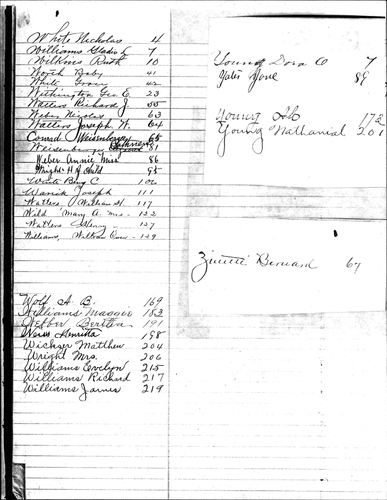 White Nicholas 4
Williams Gladis E 7
Wilkins Ruth 10
Worth Baby 41
White Grace 42
Withington Geo. E. 23
Watters Richard J. 55
Weber Nicolas 63
Watters Joseph W. 64
Conrad Weisenberger 65
Weisenberger 81
Weber Annie Miss 86
Wright H A Child 95
White Benj C. 106
Warrick Joseph 111
Watters William H. 117
Wild Mary A. Mrs - 122
Watters Henry - 127
Williams, Walton Com - 129
Wolf A. B. 169
Williams Maggie 182
Webber Bertha 191
Weiss Henrietta 198
Wickser Matthew 204
Wright Mrs. 206
Williams Evelyn 215
Williams Richard 217
Williams James 219
Young Dora O 7
Yates Jane 89
Young 172
Young Nathanial 201
Zinette Bernard 67